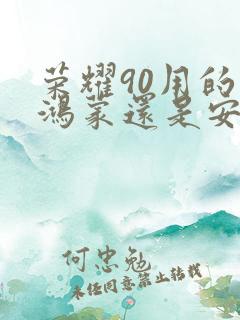 荣耀90用的
鸿蒙还是安
何忠勉
未经同意禁止转载